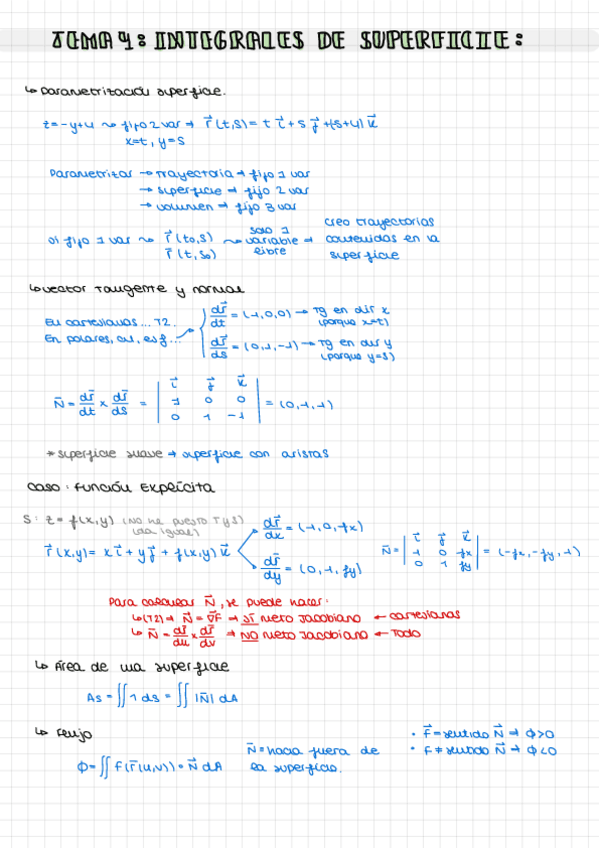 TEMA 4: INTEGRALES DE SUPERFICIE:
↳ Parametrización superficie.
z=-y+4 ⇝ fijo 2 var → r⃗(t,s) = t i⃗ + s j⃗ + (s+4) k⃗
x=t, y=s
Parametrizar → trayectoria → fijo 1 var
→ superficie → fijo 2 var
→ volumen → fijo 3 var
Si fijo 1 var ⇝ r⃗(t₀,s) r⃗(t,s₀) ⇝ solo 1 variable libre → creo trayectorias contenidas en la superficie
↳ vector tangente y normal
En cartesianas... T2.
En polares, cil, esf...
dr⃗/dt = (1,0,0) → Tg en dir x (porque x=t)
dr⃗/ds = (0,1,-1) → Tg en dir y (porque y=s)
N⃗ = dr⃗/dt × dr⃗/ds = | i⃗ j⃗ k⃗ | 1 0 0 | 0 1 -1 | = (0,1,1)
*superficie suave → superficie con aristas
Caso: Función Explícita
S: z = f(x,y) (no he puesto t y s) (da igual)
r⃗(x,y) = x i⃗ + y j⃗ + f(x,y) k⃗
dr⃗/dx = (1,0,fx)
dr⃗/dy = (0,1,fy)
N⃗ = | i⃗ j⃗ k⃗ | 1 0 fx | 0 1 fy | = (-fx,-fy,1)
Para calcular N⃗, se puede hacer:
↳ (T2) → N⃗ = ∇F → SÍ meto Jacobiano ← cartesianas
↳ N⃗ = dr⃗/du × dr⃗/dv → NO meto Jacobiano ← Todo
↳ Área de una superficie
As = ∬ 1 ds = ∬ |N⃗| dA
↳ Flujo
Φ = ∬ F(r⃗(u,v)) • N⃗ dA
N⃗ = hacia fuera de la superficie.
• F⃗ = sentido N⃗ → Φ>0
• F ≠ sentido N⃗ → Φ<0